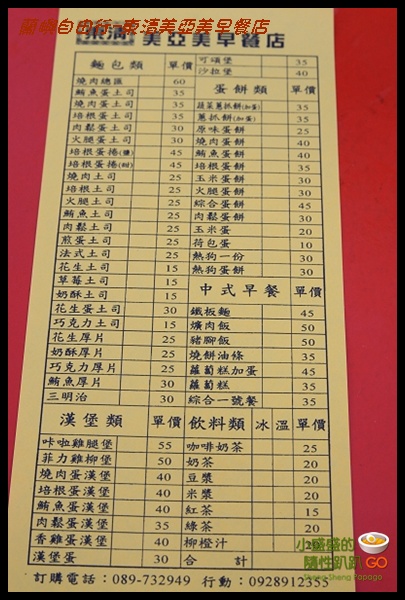 蘭嶼自由行-東清美亞美早餐店
東清 美亞美早餐店
麵包類 單價
燒肉總匯 60
鮪魚蛋土司 35
燒肉蛋土司 35
培根蛋土司 35
肉鬆蛋土司 30
火腿蛋土司 30
培根蛋捲(鹽) 45
培根蛋捲(甜) 45
燒肉土司 25
培根土司 25
火腿土司 25
鮪魚土司 25
肉鬆土司 25
煎蛋土司 25
法式土司 25
花生土司 15
草莓土司 15
奶酥土司 15
花生蛋土司 30
巧克力土司 15
花生厚片 25
奶酥厚片 25
巧克力厚片 25
鮪魚厚片 30
三明治 30
可頌堡 35
沙拉堡 40
蛋餅類 單價
蔬菜蔥抓餅(加蛋) 35
蔥抓餅(加蛋) 30
原味蛋餅 25
燒肉蛋餅 40
鮪魚蛋餅 40
培根蛋餅 30
玉米蛋餅 30
火腿蛋餅 30
綜合蛋餅 45
肉鬆蛋餅 30
玉米蛋 20
荷包蛋 10
熱狗一份 30
熱狗蛋餅 30
中式早餐 單價
鐵板麵 45
爌肉飯 50
豬腳飯 50
燒餅油條 35
蘿蔔糕加蛋 45
蘿蔔糕 35
綜合一號餐 35
漢堡類 單價
咔啦雞腿堡 55
菲力雞柳堡 50
燒肉蛋漢堡 40
培根蛋漢堡 40
鮪魚蛋漢堡 40
肉鬆蛋漢堡 35
香雞蛋漢堡 40
漢堡蛋 30
飲料類 冰 溫 單價
咖啡奶茶 25
奶茶 20
豆漿 20
米漿 20
紅茶 15
綠茶
柳橙汁
合計
訂購電話：089-732949 行動：0928912355
小盛盛的
隨性趴趴GO
Sheng Sheng Papago